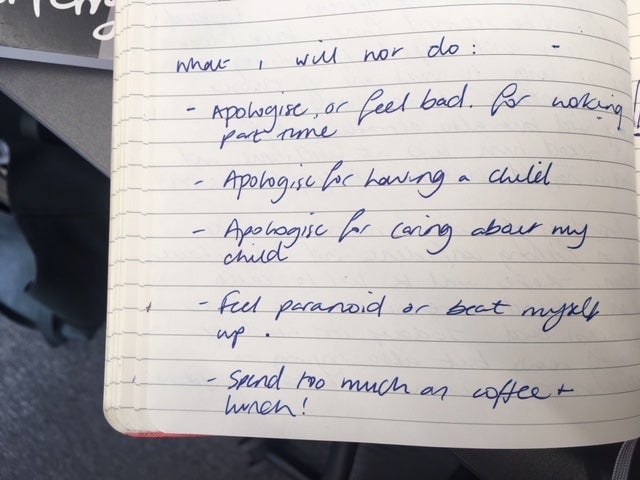 what I will not do : -
- Apologise, or feel bad. for working
part time
- Apologise for having a child
- Apologise for caring about my
child
- Feel paranoid or beat myself
up .
- Spend too much on coffee +
lunch!